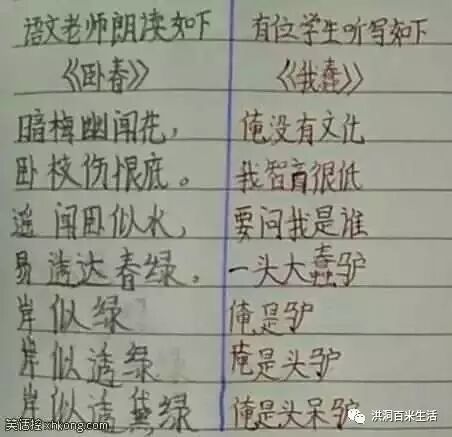 语文老师朗读如下
《卧春》
暗梅幽闻花，
卧枝伤恨底。
遥闻卧似水，
易透达春绿。
岸似绿
岸似透绿
岸似透黛绿
有位学生听写如下
《我蠢》
俺没有文化
我智商很低
要问我是谁
一头大蠢驴
俺是驴
俺是头驴
俺是头呆驴
笑话控xhkong.com
洪洞百米生活